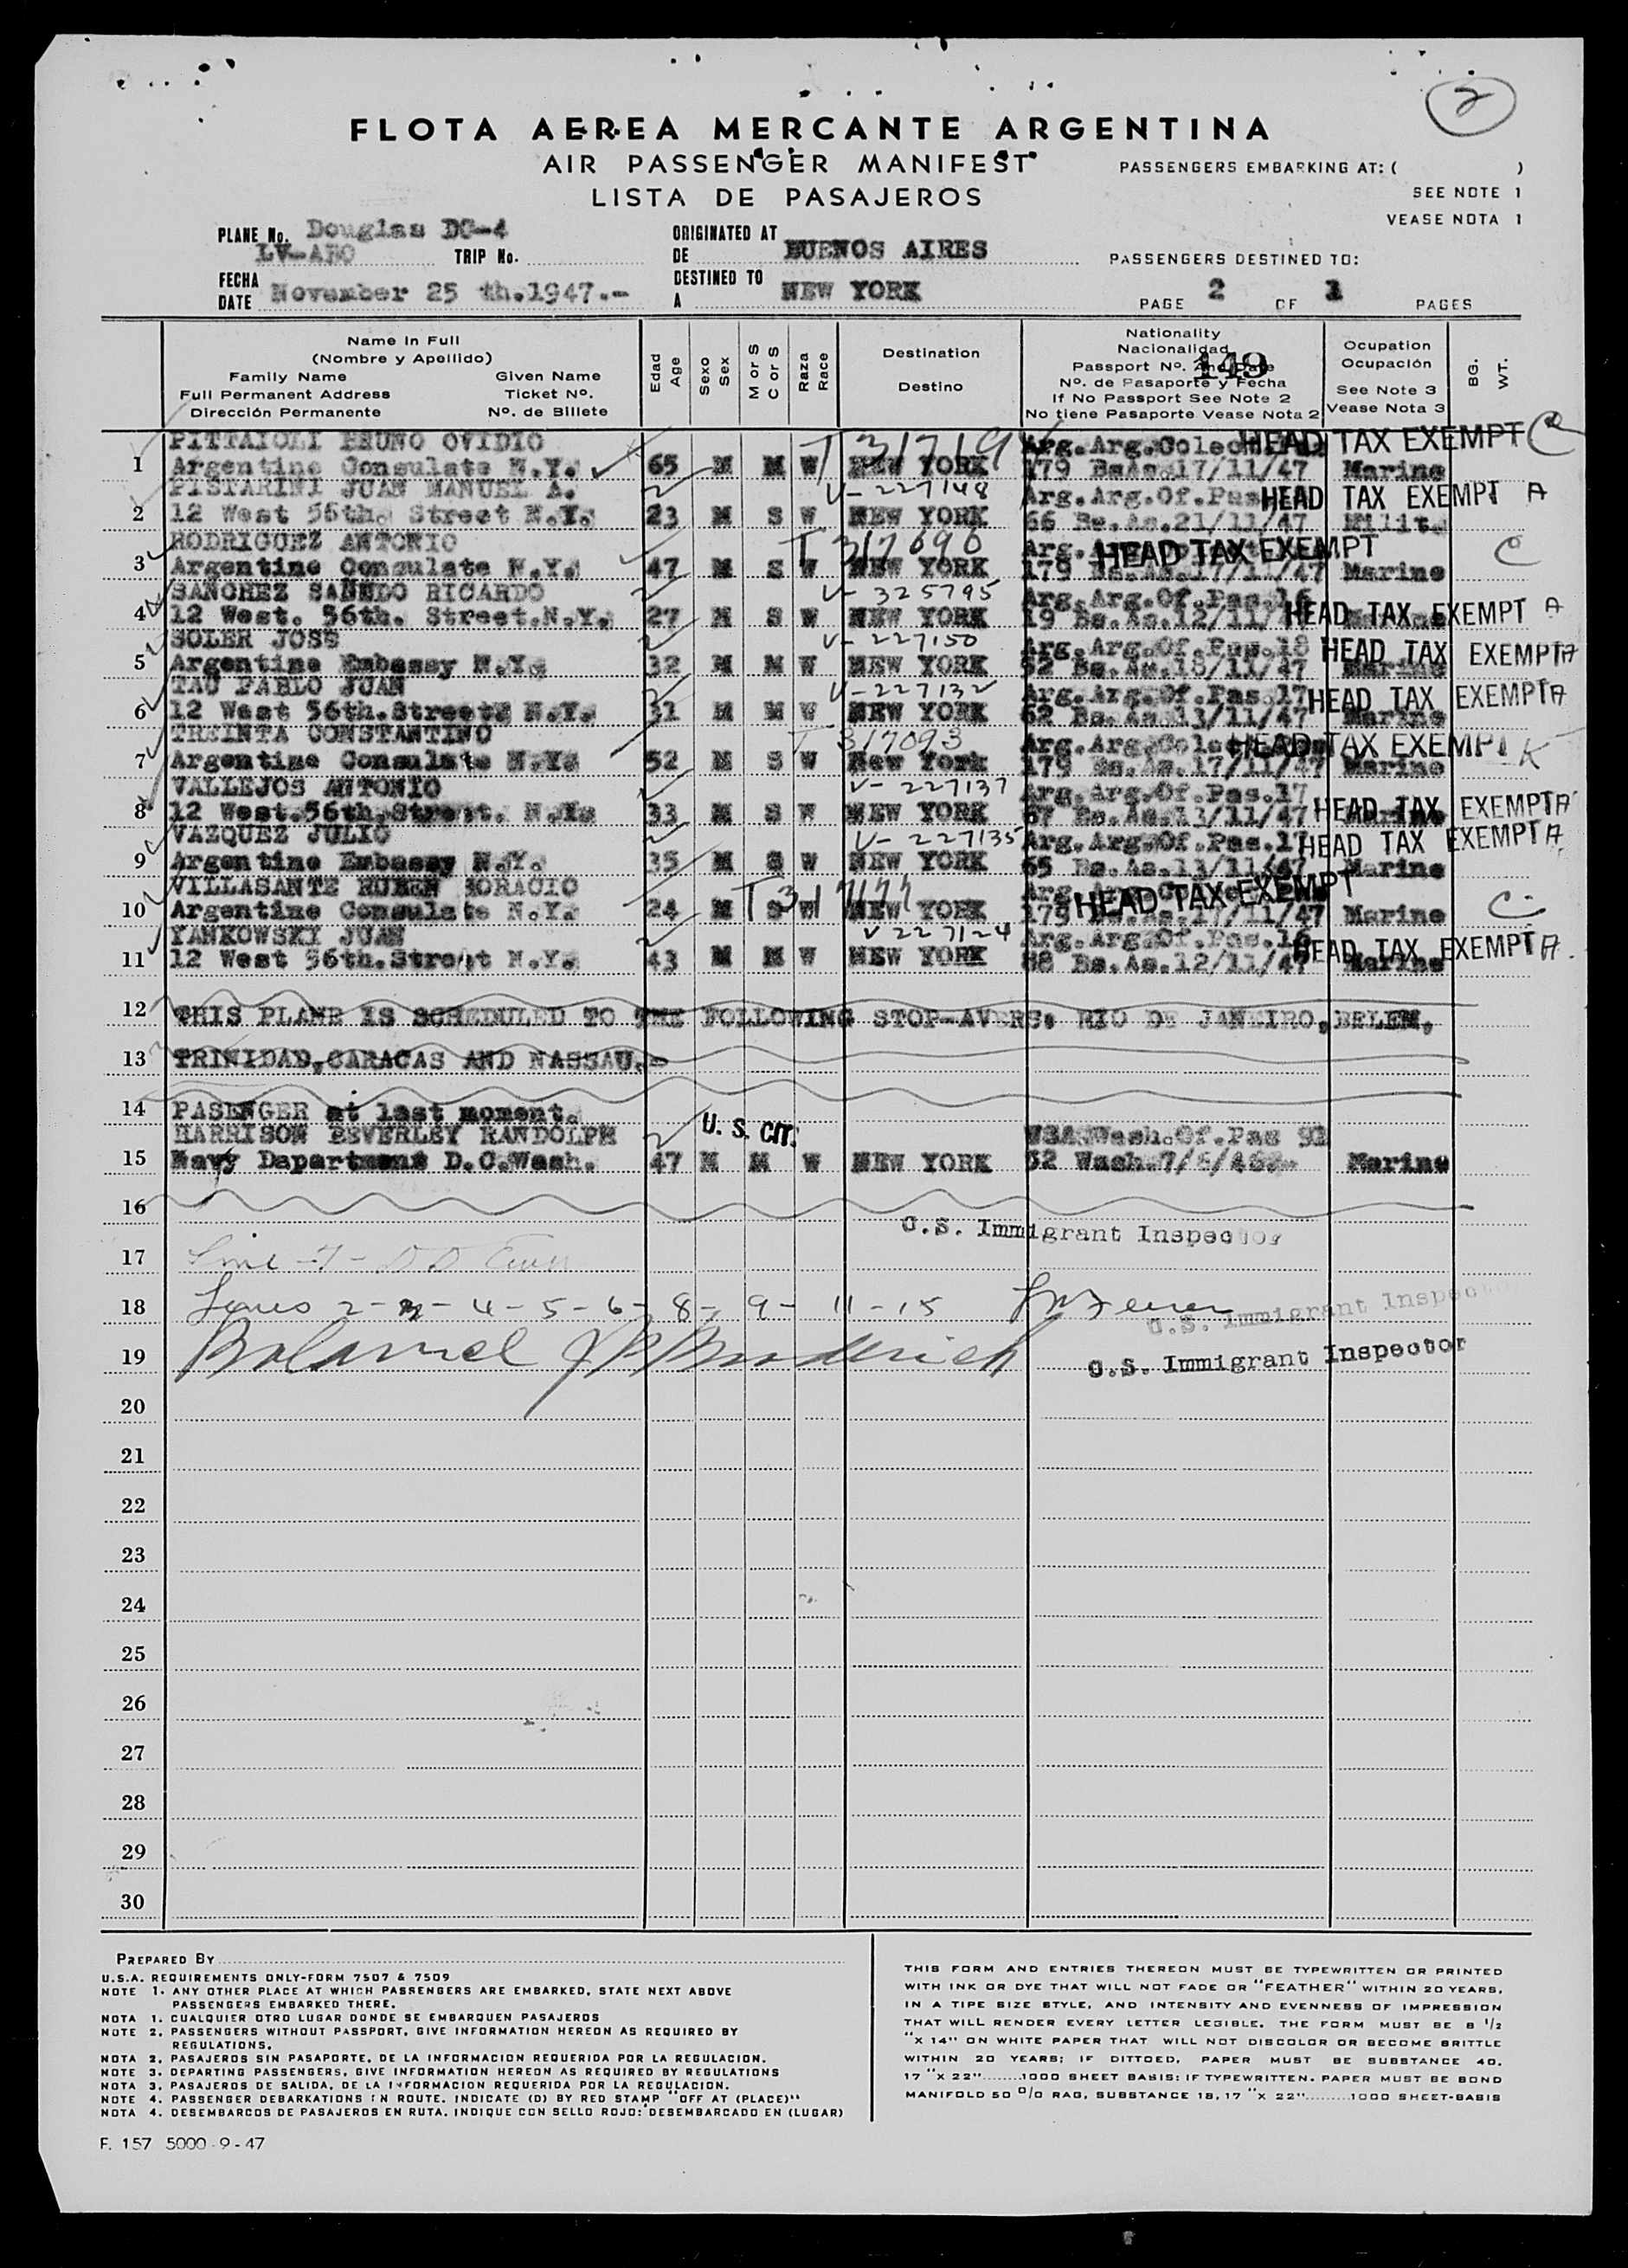 2
FLOTA AEREA MERCANTE ARGENTINA
AIR PASSENGER MANIFEST
LISTA DE PASAJEROS
PASSENGERS EMBARKING AT: ( )
SEE NOTE 1
VEASE NOTA 1
PLANE No. Douglas DC-4
TRIP No.
FECHA
DATE November 25 th.1947.-
ORIGINATED AT
DE BUENOS AIRES
DESTINED TO
A NEW YORK
PASSENGERS DESTINED TO:
PAGE 2 OF PAGES
Name In Full
(Nombre y Apellido)
Family Name Given Name
Full Permanent Address Ticket No.
Dirección Permanente No. de Billete
Edad
Age
Sexo
Sex
M or S
C or S
Raza
Race
Destination
Destino
Nationality
Nacionalidad
149
Passport No. And Date
No. de Pasaporte y Fecha
If No Passport See Note 2
No tiene Pasaporte Vease Nota 2
Ocupation
Ocupación
See Note 3
Vease Nota 3
BG.
WT.
PITTAIOLI BRUNO OVIDIO HEAD TAX EXEMPT C
1 Argentine Consulate N.Y. 65 M M W NEW YORK 179 BsAs.17/11/47 Marine
PISTARINI JUAN MANUEL A. V-227148 Arg.Arg.Of.Pas HEAD TAX EXEMPT A
2 12 West 56th. Street N.Y. 23 M S W NEW YORK 66 Bs.As.21/11/47 Milit.
RODRIGUEZ ANTONIO T 317090 HEAD TAX EXEMPT C
3 Argentine Consulate N.Y. 47 M S W NEW YORK 179 Bs.As.17/11/47 Marine
SANCHEZ SAÑUDO RICARDO V-325795 Arg.Arg.Of.Pas.16
4 12 West. 56th. Street.N.Y. 27 M S W NEW YORK 19 Bs.As.12/11/47 HEAD TAX EXEMPT A
SOLER JOSE V-227150 Arg.Arg.Of.Pas.18 HEAD TAX EXEMPT A
5 Argentine Embassy N.Y. 32 M M W NEW YORK 52 Bs.As.18/11/47 Marine
TAU PABLO JUAN V-227132 Arg.Arg.Of.Pas.17 HEAD TAX EXEMPT A
6 12 West 56th.Street. N.Y. 31 M M W NEW YORK 62 Bs.As.13/11/47 Marine
TREINTA CONSTANTINO T 317093 HEAD TAX EXEMPT K
7 Argentine Consulate N.Y. 52 M S W New York 179 Bs.As.17/11/47 Marine
VALLEJOS ANTONIO V-227137 Arg.Arg.Of.Pas.17
8 12 West.56th.Street. N.Y. 33 M S W NEW YORK 67 Bs.As.13/11/47 Marine HEAD TAX EXEMPT A
VAZQUEZ JULIO V-227135 Arg.Arg.Of.Pas.17 HEAD TAX EXEMPT A
9 Argentine Embassy N.Y. 35 M S W NEW YORK 65 Bs.As.13/11/47 Marine
VILLASANTE RUBEN HORACIO HEAD TAX EXEMPT
10 Argentine Consulate N.Y. 24 M S W NEW YORK 179 Bs.As.17/11/47 Marine C.
YANKOWSKI JUAN V 227124 Arg.Arg.Of.Pas.16 HEAD TAX EXEMPT A.
11 12 West 56th.Street N.Y. 43 M M W NEW YORK 88 Bs.As.12/11/47 Marine
12 THIS PLANE IS SCHEDULED TO THE FOLLOWING STOP-AVERS: RIO DE JANEIRO,BELEM,
13 TRINIDAD,CARACAS AND NASSAU.-
14 PASENGER at last moment.
HARRISON BEVERLEY RANDOLPH U. S. CIT. USA.Wash.Of.Pas 92
15 Navy Dapartment D.C.Wash. 47 M M W NEW YORK 32 Wash.7/6/46.- Marine
16
U.S. Immigrant Inspector
17 Line -7-
18 Lines 2- - 4 - 5 - 6 - 8 - 9 - 11 - 15
U.S. Immigrant Inspector
19 U.S. Immigrant Inspector
20
21
22
23
24
25
26
27
28
29
30
PREPARED BY
U.S.A. REQUIREMENTS ONLY-FORM 7507 & 7509
NOTE 1. ANY OTHER PLACE AT WHICH PASSENGERS ARE EMBARKED, STATE NEXT ABOVE
PASSENGERS EMBARKED THERE.
NOTA 1. CUALQUIER OTRO LUGAR DONDE SE EMBARQUEN PASAJEROS
NOTE 2. PASSENGERS WITHOUT PASSPORT, GIVE INFORMATION HEREON AS REQUIRED BY
REGULATIONS.
NOTA 2. PASAJEROS SIN PASAPORTE, DE LA INFORMACION REQUERIDA POR LA REGULACION.
NOTE 3. DEPARTING PASSENGERS, GIVE INFORMATION HEREON AS REQUIRED BY REGULATIONS
NOTA 3. PASAJEROS DE SALIDA, DE LA INFORMACION REQUERIDA POR LA REGULACION.
NOTE 4. PASSENGER DEBARKATIONS IN ROUTE. INDICATE (D) BY RED STAMP "OFF AT (PLACE)"
NOTA 4. DESEMBARCOS DE PASAJEROS EN RUTA, INDIQUE CON SELLO ROJO: DESEMBARCADO EN (LUGAR)
THIS FORM AND ENTRIES THEREON MUST BE TYPEWRITTEN OR PRINTED
WITH INK OR DYE THAT WILL NOT FADE OR "FEATHER" WITHIN 20 YEARS,
IN A TIPE SIZE STYLE, AND INTENSITY AND EVENNESS OF IMPRESSION
THAT WILL RENDER EVERY LETTER LEGIBLE. THE FORM MUST BE 8 1/2
"X 14" ON WHITE PAPER THAT WILL NOT DISCOLOR OR BECOME BRITTLE
WITHIN 20 YEARS; IF DITTOED, PAPER MUST BE SUBSTANCE 40.
17 "X 22".......1000 SHEET BASIS: IF TYPEWRITTEN. PAPER MUST BE BOND
MANIFOLD 50 0/0 RAG, SUBSTANCE 18, 17 "X 22".......1000 SHEET-BASIS
F. 157 5000-9-47